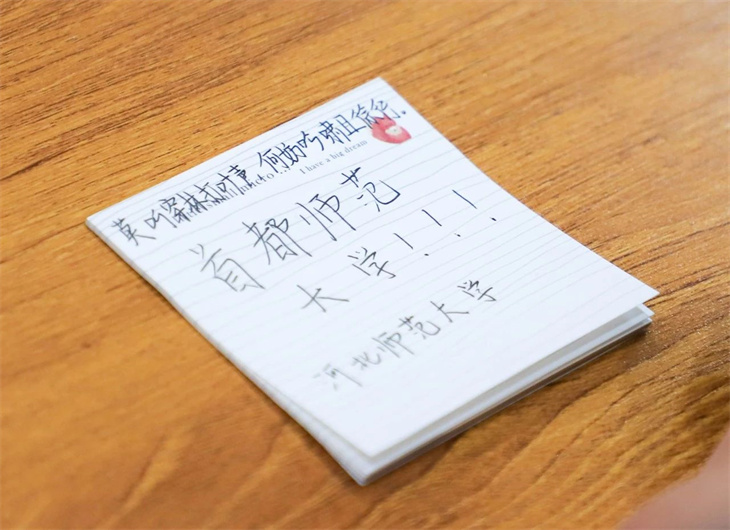 莫听穿林打叶声,何妨吟啸且徐行.
I have a big dream
首都师范
大学!!!
河北师范大学